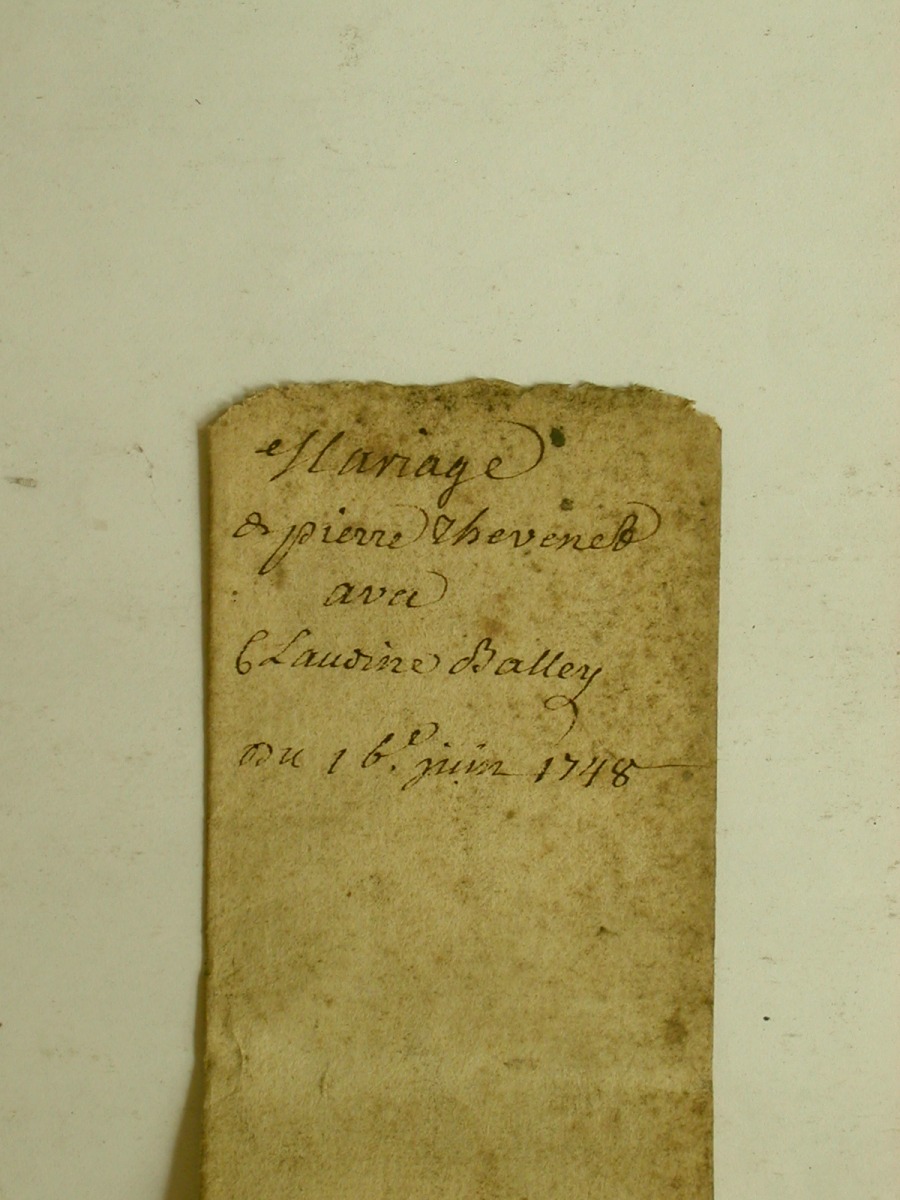 Mariage
de pierre thevenet
avec
Claudine Balley
du 16e. juin 1748